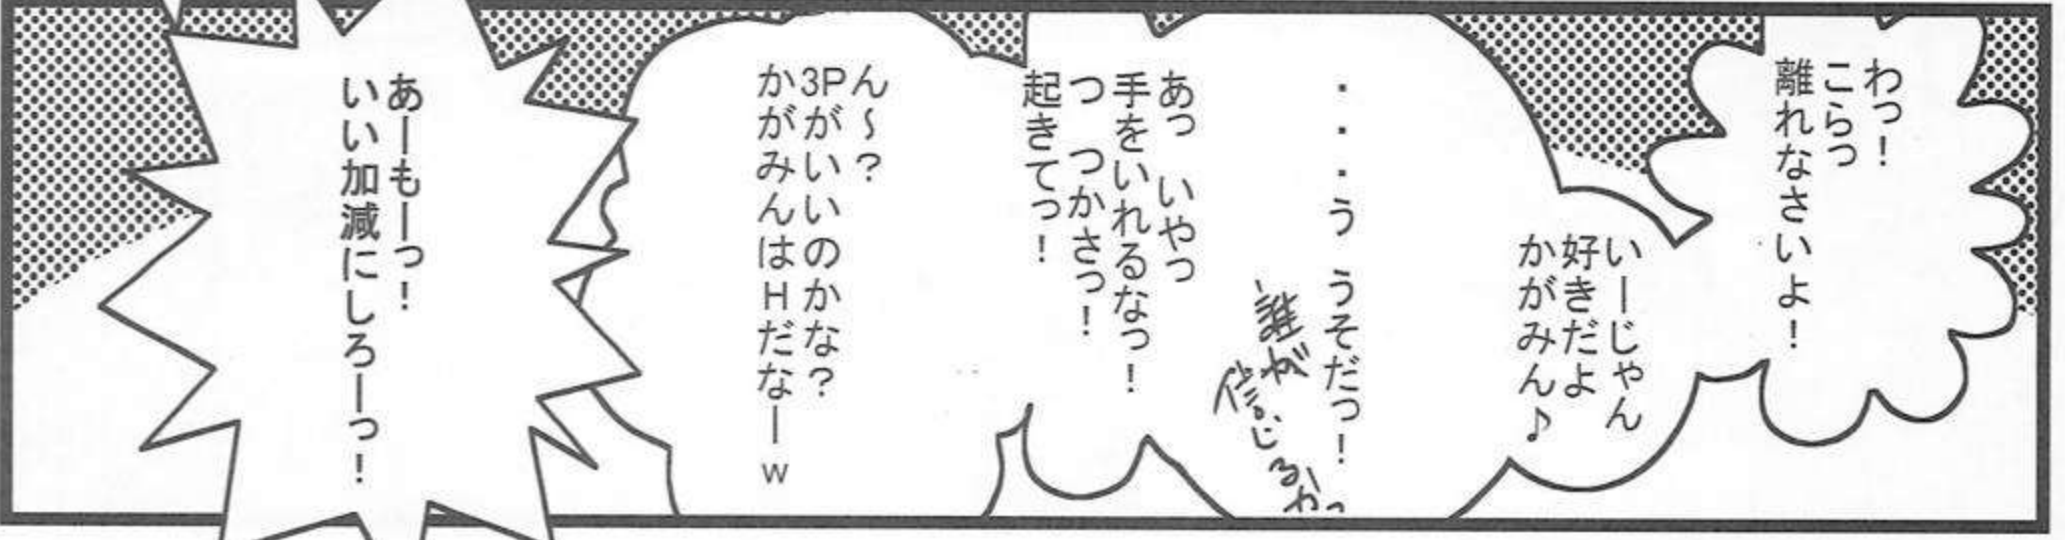 わっ！
こらっ
離れなさいよ！
いーじゃん
好きだよ
かがみん♪
・・・う　うそだっ！
誰が
信じるかっ
あっ　いやっ
手をいれるなっ！
つ　つかさっ！
起きてっ！
ん～？
3Pがいいのかな？
かがみんはHだなーw
あーもーっ！
いい加減にしろーっ！